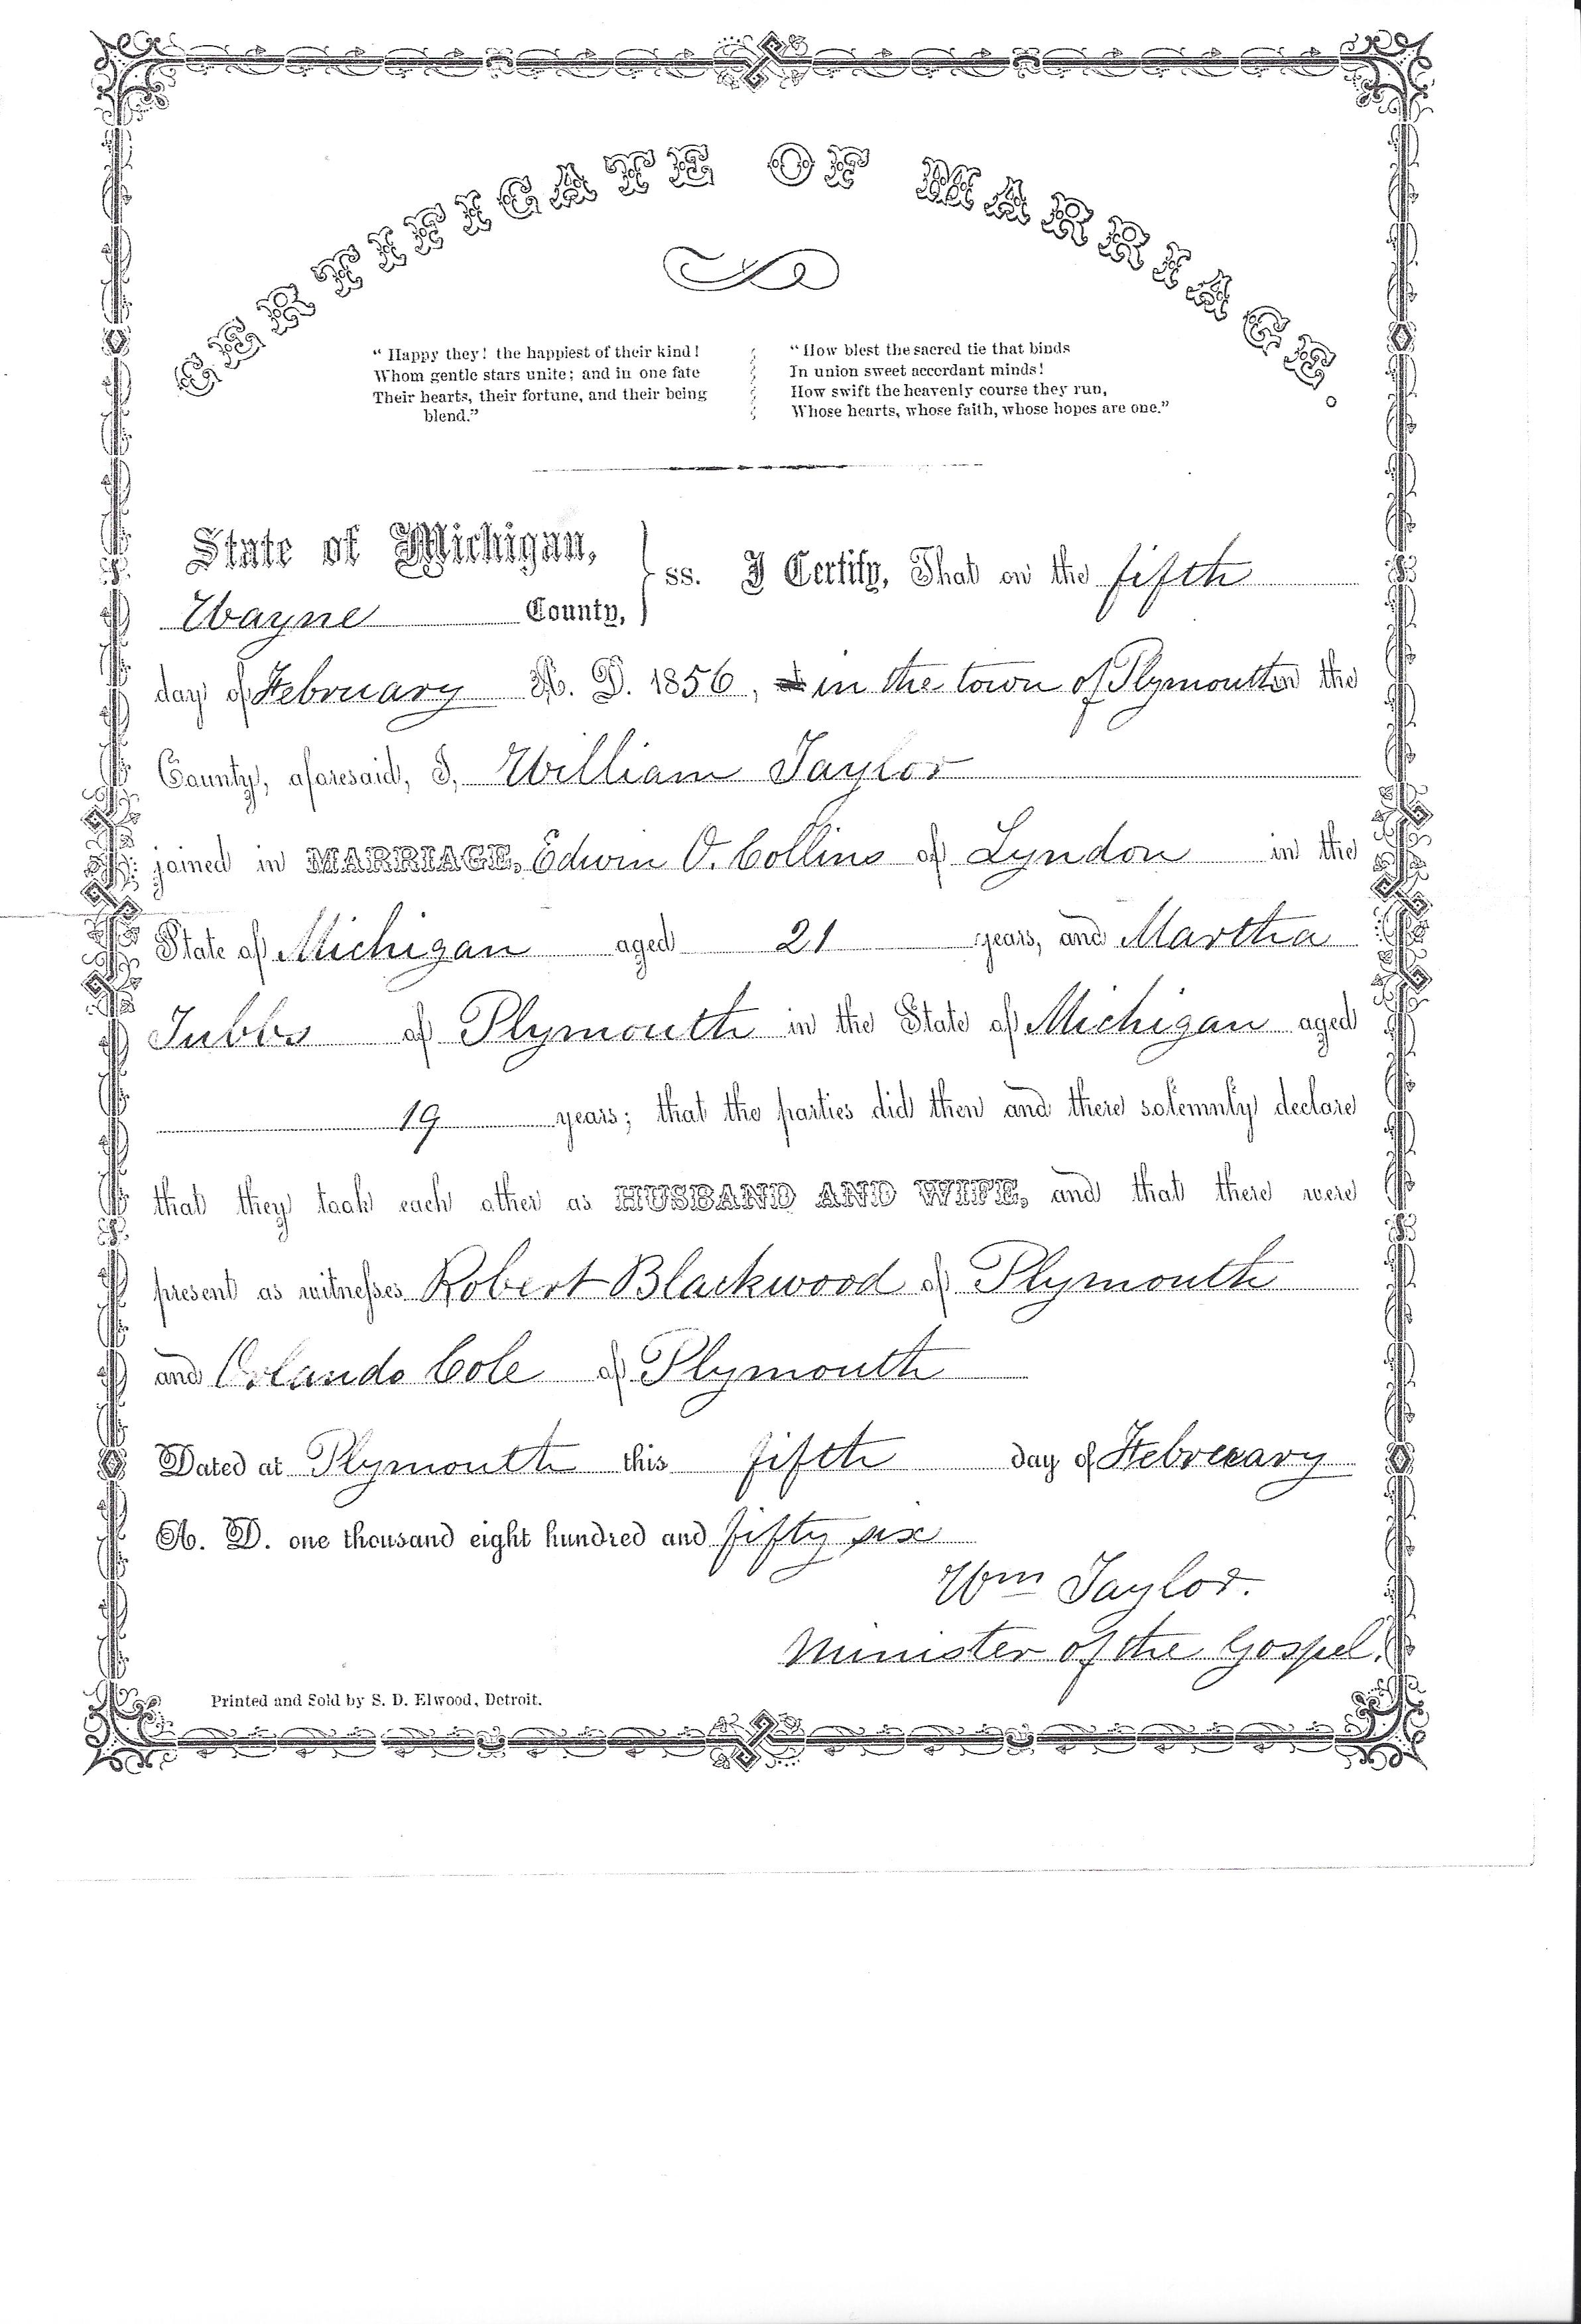 CERTIFICATE OF MARRIAGE.
“Happy they! the happiest of their kind!
Whom gentle stars unite; and in one fate
Their hearts, their fortune, and their being
blend.”
“How blest the sacred tie that binds
In union sweet accordant minds!
How swift the heavenly course they run,
Whose hearts, whose faith, whose hopes are one.”
State of Michigan,
Wayne County, } ss. I Certify, That on the fifth
day of February A. D. 1856, in the town of Plymouth in the
County, aforesaid, I, William Taylor
joined in MARRIAGE, Edwin O. Collins of Lyndon in the
State of Michigan aged 21 years, and Martha
Tubbs of Plymouth in the State of Michigan aged
19 years; that the parties did then and there solemnly declare
that they took each other as HUSBAND AND WIFE, and that there were
present as witnesses Robert Blackwood of Plymouth
and Orlando Cole of Plymouth
Dated at Plymouth this fifth day of February
A. D. one thousand eight hundred and fifty six
Wm Taylor.
Minister of the Gospel.
Printed and Sold by S. D. Elwood, Detroit.